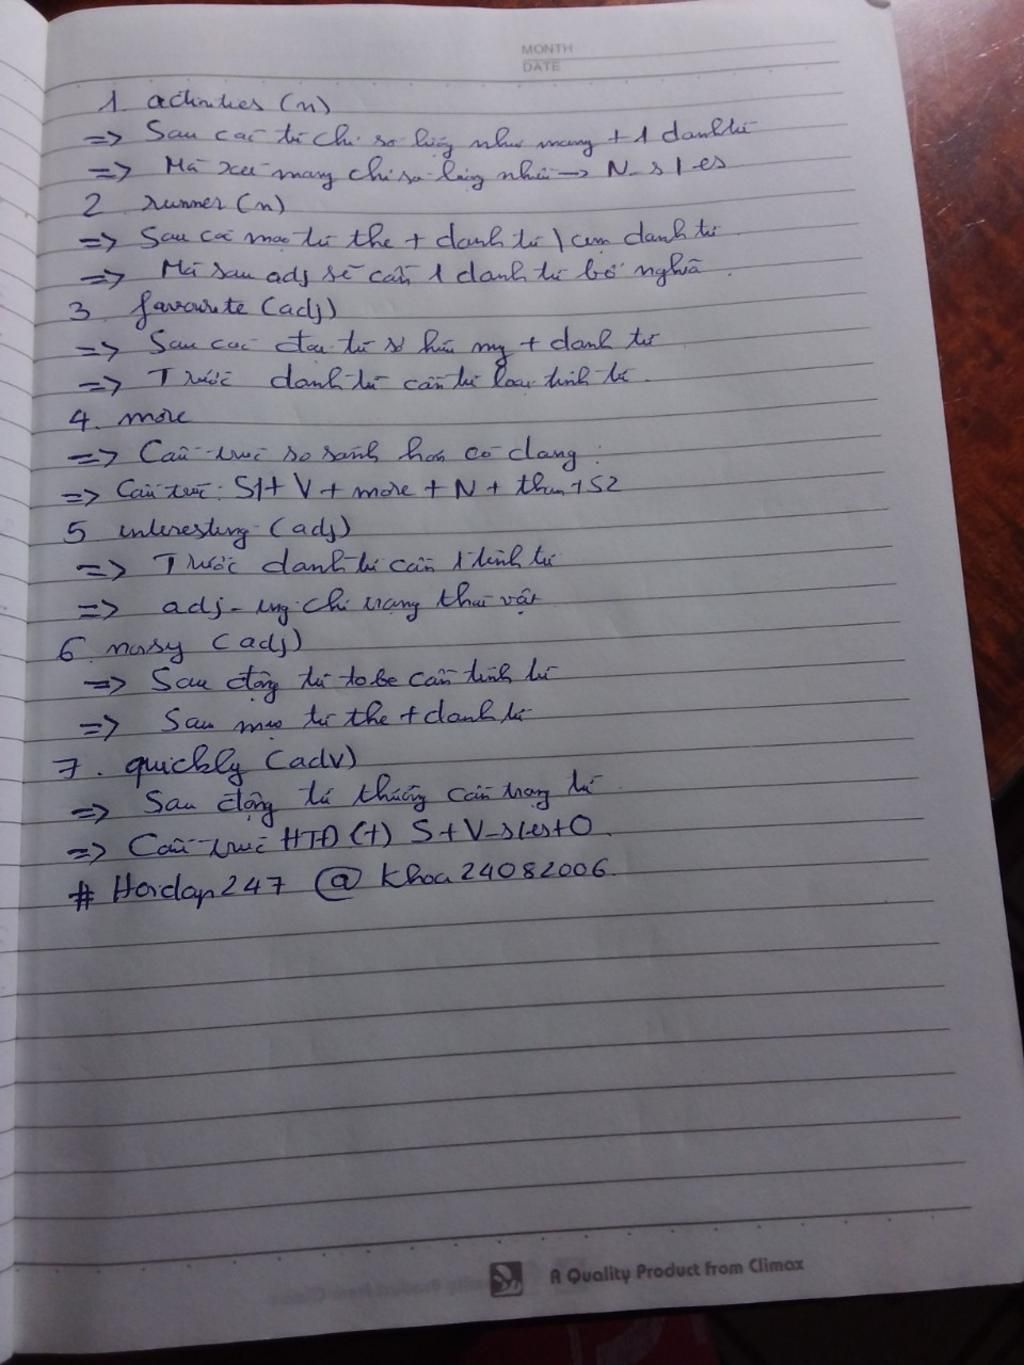 MONTH
DATE
1. activities (n)
=> Sau các từ chỉ số lượng như many + 1 danh từ
=> Mà xét many chỉ số lượng nhiều -> N_s/es
2 runner (n)
=> Sau các mạo từ the + danh từ \ cụm danh từ
=> Mà sau adj sẽ cần 1 danh từ bổ nghĩa.
3 favourite (adj)
=> Sau các đại từ sở hữu my + danh từ
=> Trước danh từ cần từ loại tính từ.
4. more
=> Cấu trúc so sánh hơn có dạng:
=> Cấu trúc: S1 + V + more + N + than + S2
5 interesting (adj)
=> Trước danh từ cần 1 tính từ
=> adj-ing chỉ trạng thái vật
6. noisy (adj)
=> Sau động từ tobe cần tính từ
=> Sau mạo từ the + danh từ
7. quickly (adv)
=> Sau động từ thường cần trạng từ
=> Cấu trúc HTĐ (+) S + V_s/es + O.
# Hoidap247 @ khoa24082006.
A Quality Product from Climax